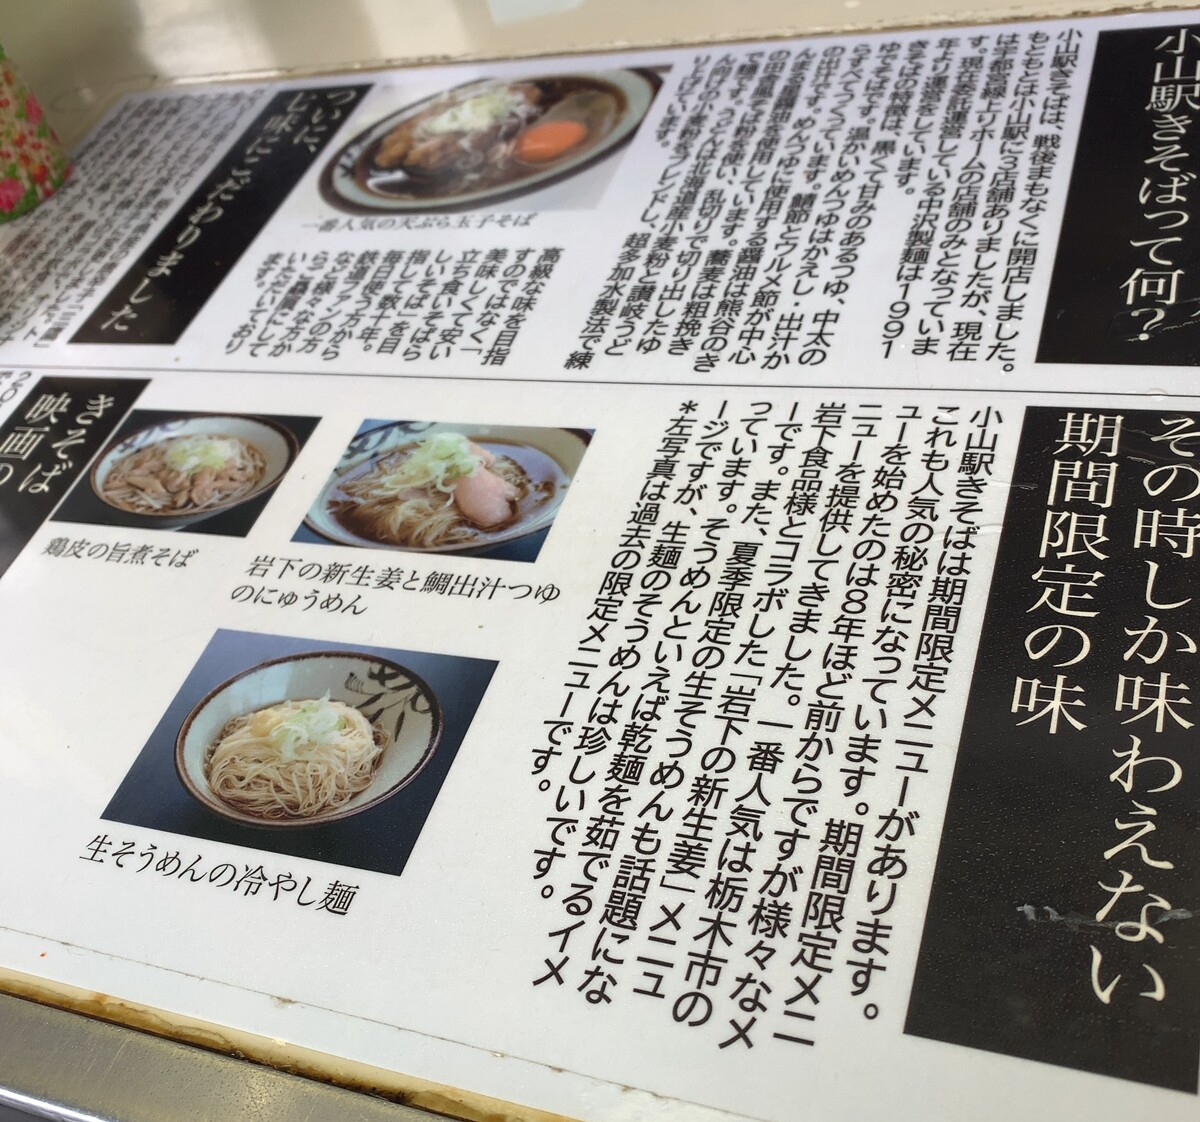 小山駅きそばって何？
小山駅きそばは、戦後まもなくに開店しました。
もともとは小山駅に3店舗ありましたが、現在
は宇都宮線上りホームの店舗のみとなっていま
す。現在委託運営している中沢製麺は1991
年より運営をしています。
きそばの特徴は、黒くて甘みのあるつゆ、中太の
ゆでそばです。温かいめんつゆはかえし・出汁か
らすべてつくっています。鯖節とウルメ節が中心
の出汁です。めんつゆに使用する醤油は熊谷のき
んまる星醤油を使用しています。蕎麦は粗挽き
の田舎風そば粉を使い、乱切りで切り出したゆ
で麺です。うどんは北海道産小麦粉と讃岐うど
ん用の小麦粉をブレンドし、超多加水製法で練
り上げています。
一番人気の天ぷら玉子そば
高級な味を目指
すのではなく「
美味しくて安い
立ち食いそばら
しいそば」を目
指して数十年。
毎日使う方から
鉄道ファンの方
など様々な方か
らご贔屓にして
いただいており
ます。
ついに、
し味にこだわりました
その時しか味わえない
期間限定の味
小山駅きそばは期間限定メニューがあります。
これも人気の秘密になっています。期間限定メニ
ューを始めたのは8年ほど前からですが様々なメ
ニューを提供してきました。一番人気は栃木市の
岩下食品様とコラボした「岩下の新生姜」メニュ
ーです。また、夏季限定の生そうめんも話題にな
っています。そうめんといえば乾麺を茹でるイメ
ージですが、生麺のそうめんは珍しいです。
*左写真は過去の限定メニューです。
岩下の新生姜と鯛出汁つゆ
のにゅうめん
鶏皮の旨煮そば
生そうめんの冷やし麺
きそば
映画の